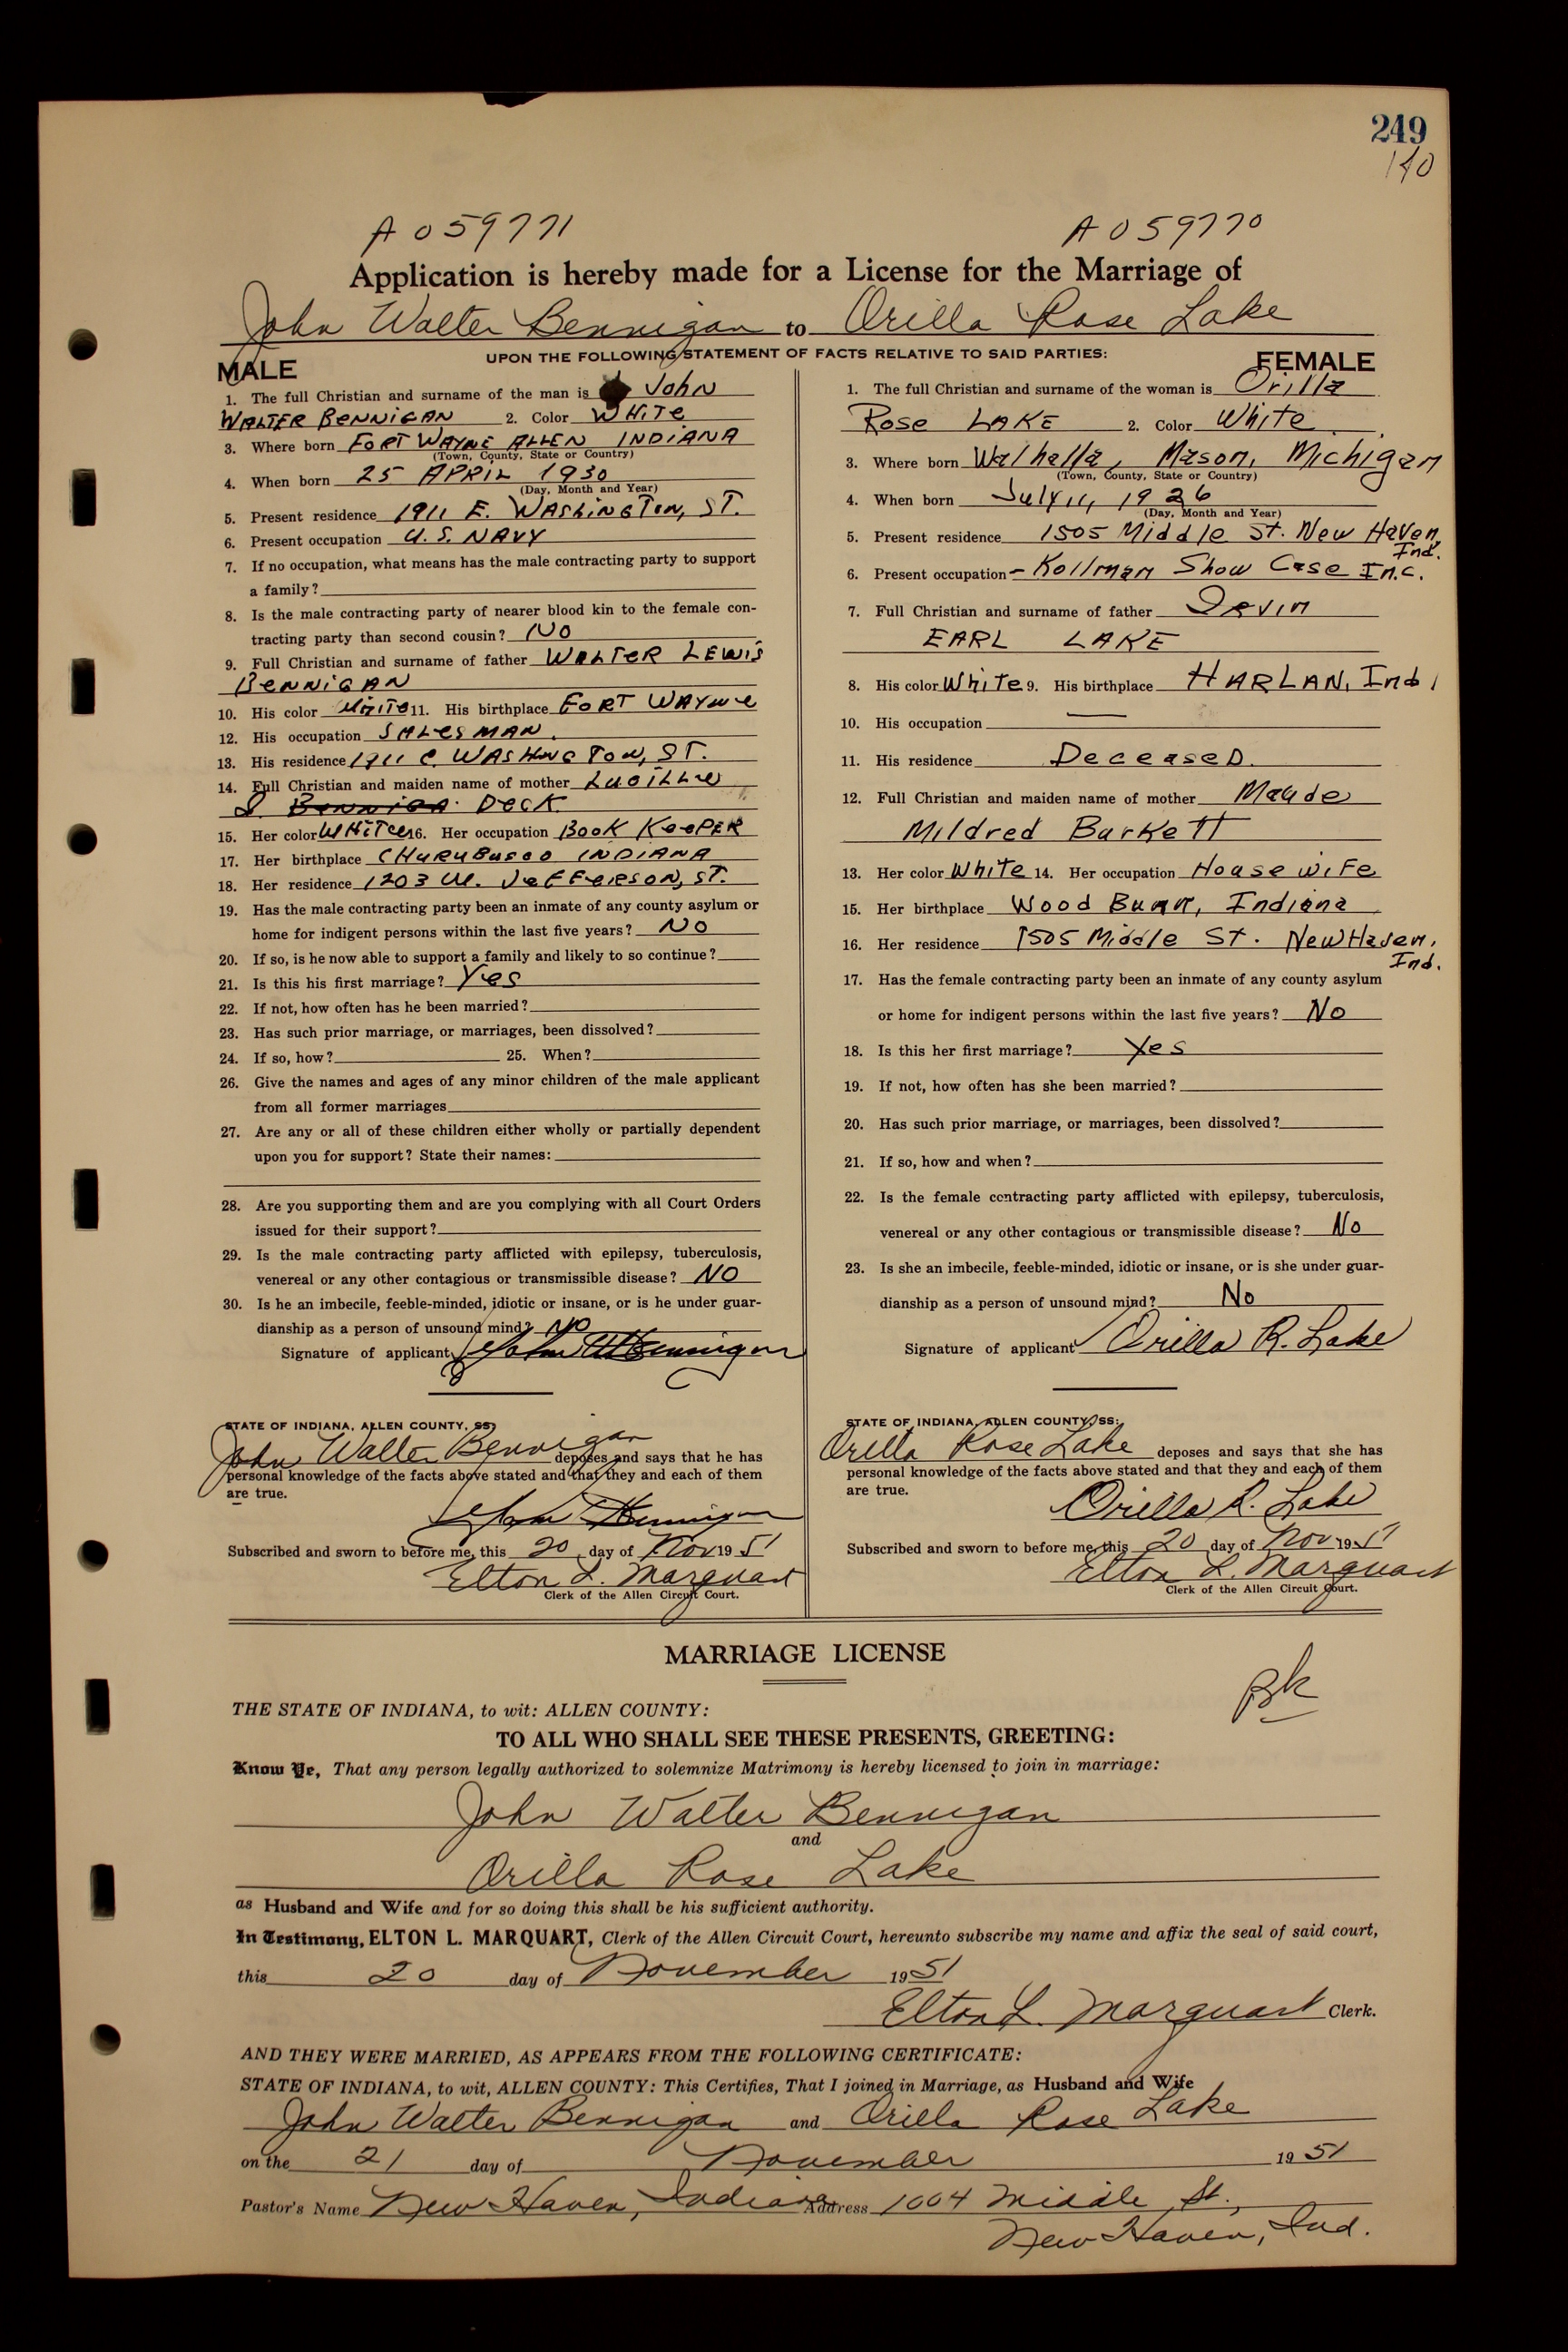 249
140
A 059771 A 059770
Application is hereby made for a License for the Marriage of
John Walter Bennigan to Orilla Rose Lake
UPON THE FOLLOWING STATEMENT OF FACTS RELATIVE TO SAID PARTIES:
MALE
1. The full Christian and surname of the man is John
WALTER BENNIGAN 2. Color WHITE
3. Where born FORT WAYNE ALLEN INDIANA
(Town, County, State or Country)
4. When born 25 APRIL 1930
(Day, Month and Year)
5. Present residence 1911 E. WASHINGTON, ST.
6. Present occupation U.S. NAVY
7. If no occupation, what means has the male contracting party to support
a family?
8. Is the male contracting party of nearer blood kin to the female con-
tracting party than second cousin? NO
9. Full Christian and surname of father WALTER LEWIS
BENNIGAN
10. His color WHITE 11. His birthplace FORT WAYNE
12. His occupation SALESMAN.
13. His residence 1911 E WASHINGTON, ST.
14. Full Christian and maiden name of mother LUCILLE
Deck
15. Her color WHITE 16. Her occupation BOOK KEEPER
17. Her birthplace CHURUBUSCO INDIANA
18. Her residence 1203 W. JEFFERSON, ST.
19. Has the male contracting party been an inmate of any county asylum or
home for indigent persons within the last five years? NO
20. If so, is he now able to support a family and likely to so continue?
21. Is this his first marriage? Yes
22. If not, how often has he been married?
23. Has such prior marriage, or marriages, been dissolved?
24. If so, how? 25. When?
26. Give the names and ages of any minor children of the male applicant
from all former marriages
27. Are any or all of these children either wholly or partially dependent
upon you for support? State their names:
28. Are you supporting them and are you complying with all Court Orders
issued for their support?
29. Is the male contracting party afflicted with epilepsy, tuberculosis,
venereal or any other contagious or transmissible disease? NO
30. Is he an imbecile, feeble-minded, idiotic or insane, or is he under guar-
dianship as a person of unsound mind? NO
Signature of applicant John W Bennigan
STATE OF INDIANA, ALLEN COUNTY, SS:
John Walter Bennigan deposes and says that he has
personal knowledge of the facts above stated and that they and each of them
are true.
John Bennigan
Subscribed and sworn to before me, this 20 day of Nov 1951
Elton L. Marquart
Clerk of the Allen Circuit Court.
FEMALE
1. The full Christian and surname of the woman is Orilla
Rose LAKE 2. Color White
3. Where born Walhalla, Mason, Michigan
(Town, County, State or Country)
4. When born July 11, 1926
(Day, Month and Year)
5. Present residence 1505 Middle St. New Haven,
Ind.
6. Present occupation - Kollman Show Case Inc.
7. Full Christian and surname of father Irvin
EARL LAKE
8. His color White 9. His birthplace HARLAN, Ind,
10. His occupation —
11. His residence Deceased.
12. Full Christian and maiden name of mother Maude
Mildred Burkett
13. Her color White 14. Her occupation Housewife
15. Her birthplace Wood Burn, Indiana
16. Her residence 1505 Middle St. New Haven,
Ind.
17. Has the female contracting party been an inmate of any county asylum
or home for indigent persons within the last five years? No
18. Is this her first marriage? Yes
19. If not, how often has she been married?
20. Has such prior marriage, or marriages, been dissolved?
21. If so, how and when?
22. Is the female contracting party afflicted with epilepsy, tuberculosis,
venereal or any other contagious or transmissible disease? No
23. Is she an imbecile, feeble-minded, idiotic or insane, or is she under guar-
dianship as a person of unsound mind? No
Signature of applicant Orilla R. Lake
STATE OF INDIANA, ALLEN COUNTY, SS:
Orilla Rose Lake deposes and says that she has
personal knowledge of the facts above stated and that they and each of them
are true.
Orilla R. Lake
Subscribed and sworn to before me, this 20 day of Nov 1951
Elton L. Marquart
Clerk of the Allen Circuit Court.
MARRIAGE LICENSE
THE STATE OF INDIANA, to wit: ALLEN COUNTY:
TO ALL WHO SHALL SEE THESE PRESENTS, GREETING:
Know Ye, That any person legally authorized to solemnize Matrimony is hereby licensed to join in marriage:
John Walter Bennigan
and
Orilla Rose Lake
as Husband and Wife and for so doing this shall be his sufficient authority.
In Testimony, ELTON L. MARQUART, Clerk of the Allen Circuit Court, hereunto subscribe my name and affix the seal of said court,
this 20 day of November 1951
Elton L. Marquart Clerk.
AND THEY WERE MARRIED, AS APPEARS FROM THE FOLLOWING CERTIFICATE:
STATE OF INDIANA, to wit, ALLEN COUNTY: This Certifies, That I joined in Marriage, as Husband and Wife
John Walter Bennigan and Orilla Rose Lake
on the 21 day of November 1951
Pastor's Name New Haven, Indiana Address 1004 Middle St.,
New Haven, Ind.